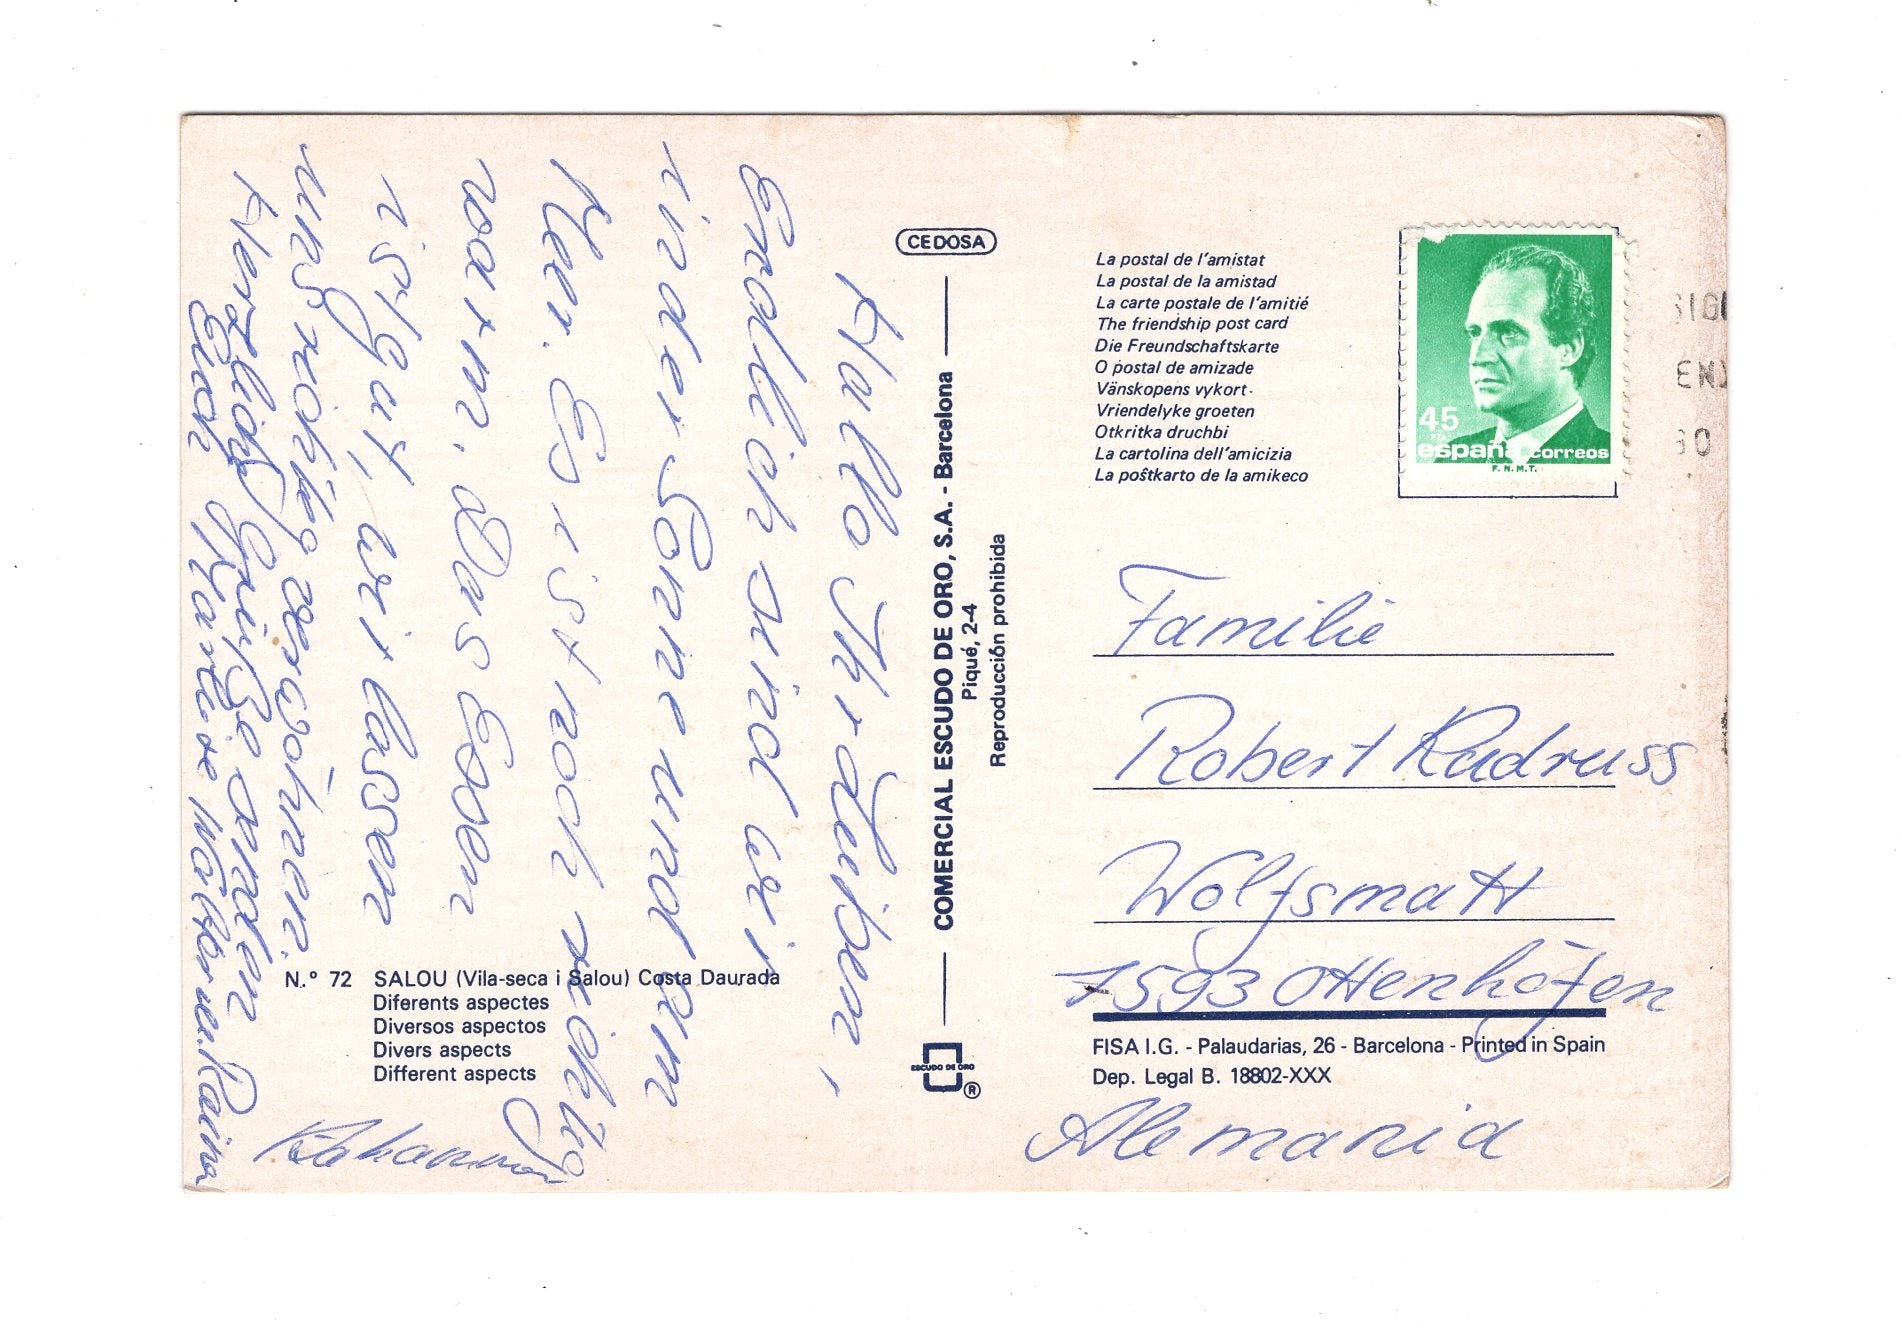 Hallo Ihr Lieben,
Endlich sind wir
in der Sonne und am
Meer. Es ist noch richtig
warm. Das Essen
ist gut, wir lassen
uns richtig verwöhnen.
Herzliche Grüße senden
Euch Marlise
CEDOSA
COMERCIAL ESCUDO DE ORO, S.A. - Barcelona
Piqué, 2-4
Reproducción prohibida
ESCUDO DE ORO
®
N.º 72 SALOU (Vila-seca i Salou) Costa Daurada
Diferents aspectes
Diversos aspectos
Divers aspects
Different aspects
La postal de l'amistat
La postal de la amistad
La carte postale de l'amitié
The friendship post card
Die Freundschaftskarte
O postal de amizade
Vänskopens vykort
Vriendelyke groeten
Otkritka druchbi
La cartolina dell'amicizia
La poŝtkarto de la amikeco
45
PTA
españa correos
F.N.M.T.
Familie
Robert Kadruss
Wolfsmatt
7593 Ottenhöfen
FISA I.G. - Palaudarias, 26 - Barcelona - Printed in Spain
Dep. Legal B. 18802-XXX
Alemania